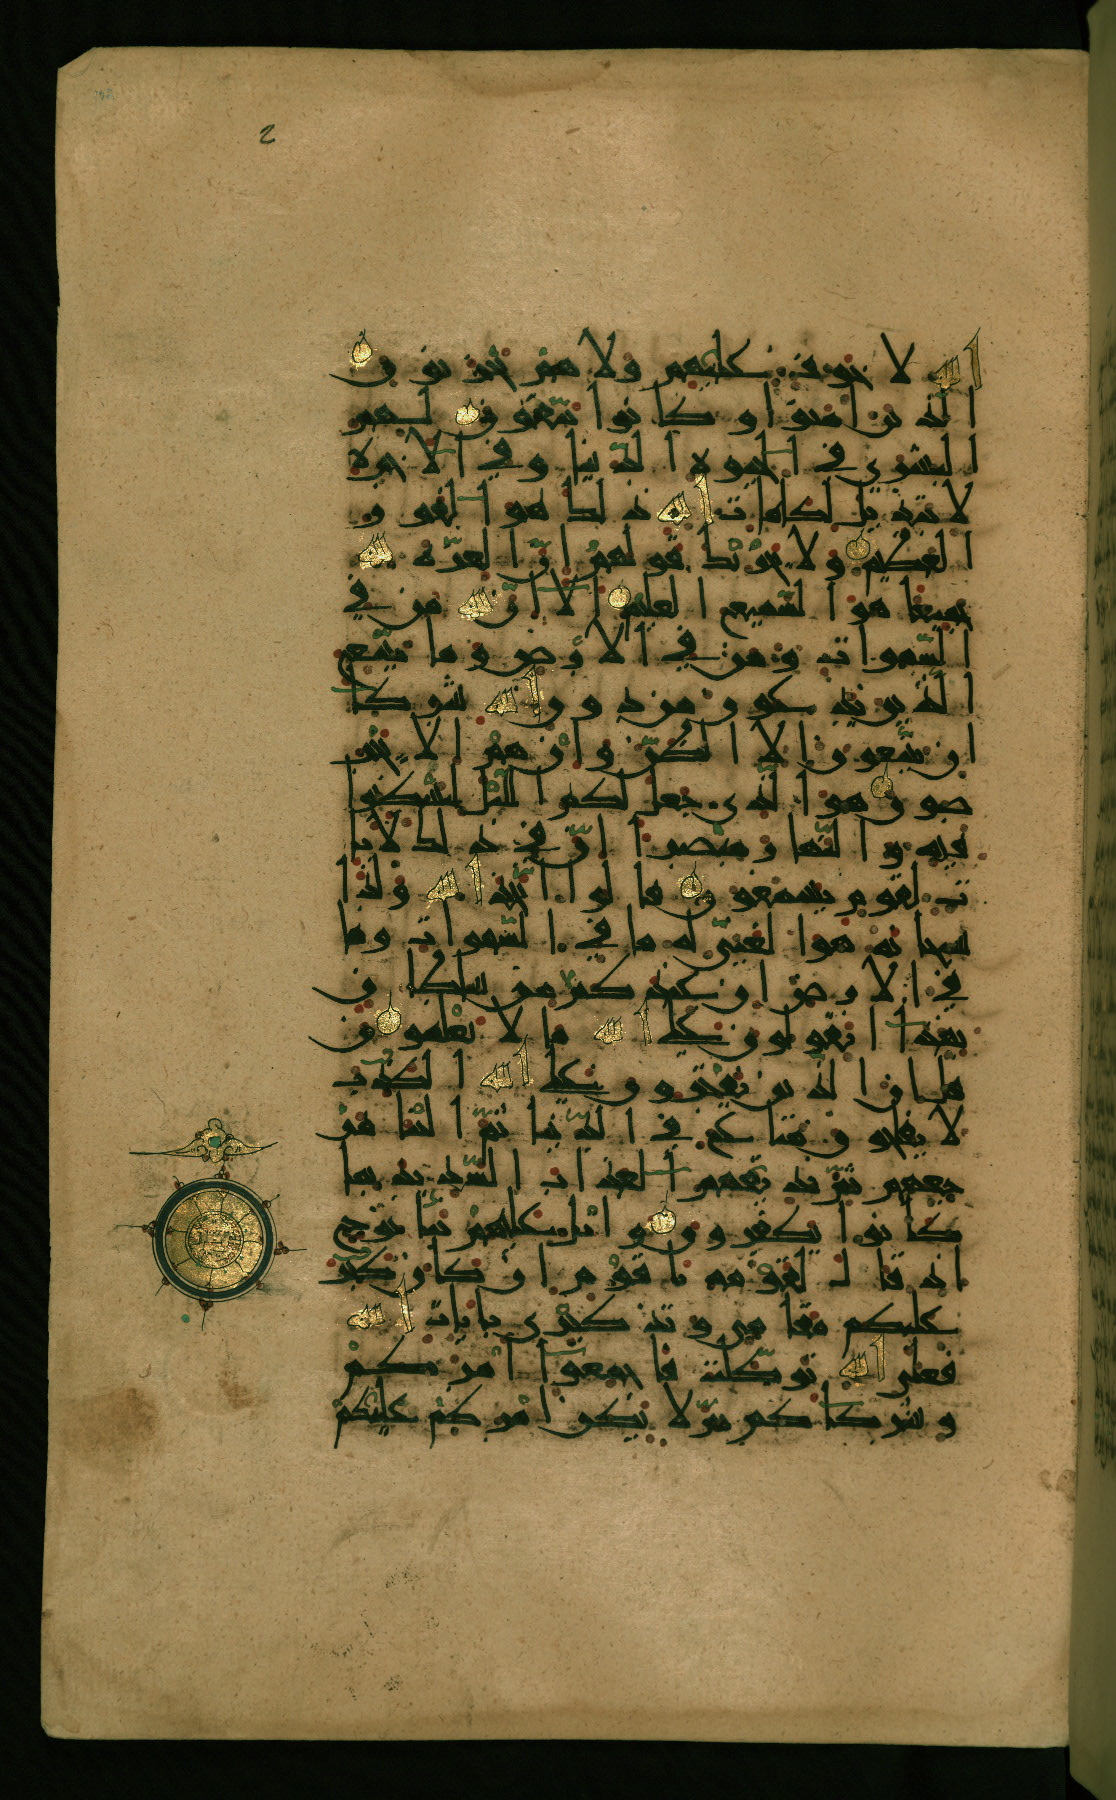 2
الله لا خوف عليهم ولا هم يحزنون
الذين امنوا وكانوا يتقون لهم
البشرى في الحيوة الدنيا وفي الاخرة
لا تبديل لكلمات الله ذلك هو الفوز
العظيم ولا يحزنك قولهم ان العزة لله
جميعا هو السميع العليم الا ان لله من في
السموات ومن في الارض وما يتبع
الذين يدعون من دون الله شركا
ان يتبعون الا الظن وان هم الا يخر
صون هو الذي جعل لكم الليل لتسكنوا
فيه والنهار مبصرا ان في ذلك لايا
ت لقوم يسمعون قالوا اتخذ الله ولدا
سبحانه هو الغني له ما في السموات وما
في الارض ان عندكم من سلطان
بهذا اتقولون على الله ما لا تعلمون
قل ان الذين يفترون على الله الكذب
لا يفلحون متاع في الدنيا ثم الينا مر
جعهم ثم نذيقهم العذاب الشديد بما
كانوا يكفرون واتل عليهم نبا نوح
اذ قال لقومه يا قوم ان كان كبر
عليكم مقامي وتذكيري بايات الله
فعلى الله توكلت فاجمعوا امركم
وشركاكم ثم لا يكن امركم عليكم